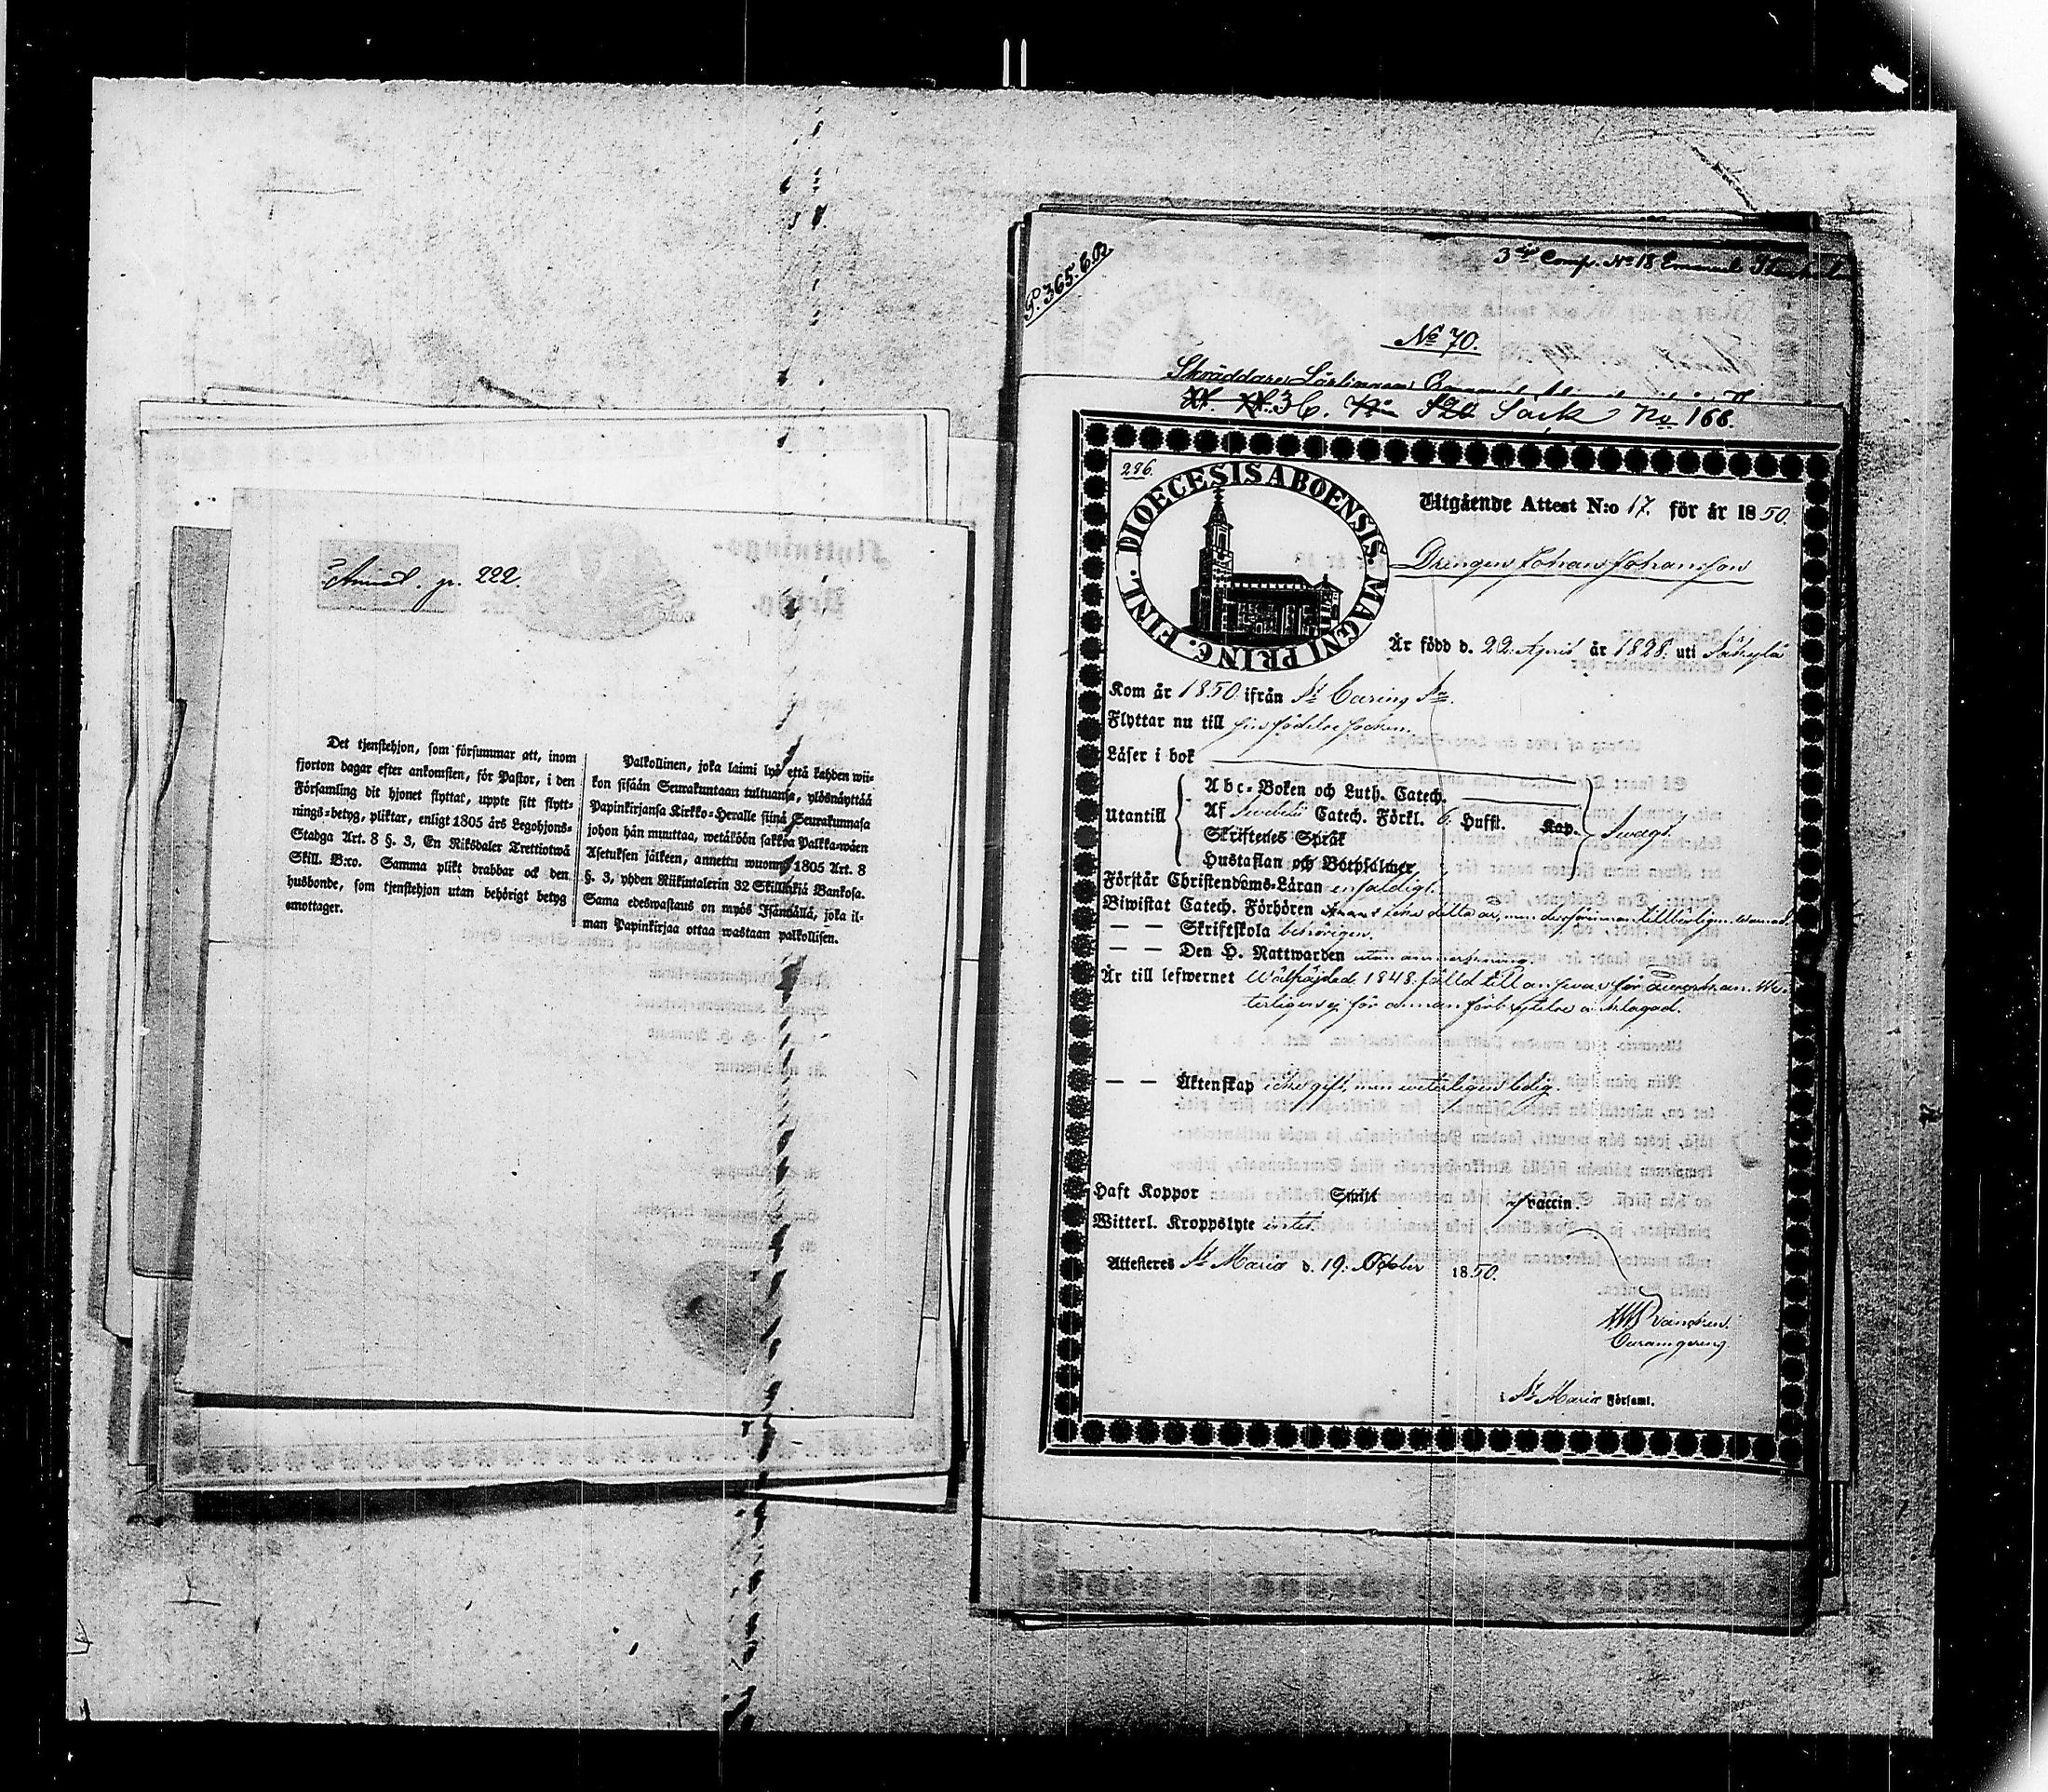 Anmäl. p. 222.
Det tjenstehjon, som försummar att, inom
fjorton dagar efter ankomsten, för Pastor, i den
Församling dit hjonet flyttat, uppte sitt flytt-
nings-betyg, pliktar, enligt 1805 års Legohjons-
Stadga Art. 8 §. 3, En Riksdaler Trettiotwå
Skill. B:co. Samma plikt drabbar ock den
husbonde, som tjenstehjon utan behörigt betyg
emottager.
Palkollinen, joka laimi lyö että kahden wii-
kon sisään Seurakuntaan tultuansa, ylösnäyttää
Papinkirjansa Kirkko-Herralle siinä Seurakunnasa
johon hän muuttaa, wetäköön sakkoa Palkkawäen
Asetuksen jälkeen, annettu wuonna 1805 Art. 8
§. 3, yhden Riikintalerin 32 Skillinkiä Bankosa.
Sama edeswastaus on myös Isännällä, joka il-
man Papinkirjaa ottaa wastaan palkollisen.
P. 365. C.B.
3die Comp. No 18 Emanuel
No 70.
Skräddare Lärlingen Emanuel
3 C. Säck No 166.
286.
DIOECESIS ABOENSIS. MAGNI PRINC. FINL.
Utgående Attest N:o 17. för år 1850.
Drengen Johan Johansson
Är född d. 22. April år 1828. uti Säkylä
Kom år 1850. ifrån St Carins Sn.
Flyttar nu till sin födelse socken.
Läser i bok
Utantill
Abc-Boken och Luth. Catech.
Af Svebelii Catech. Förkl. 6. Hufst. Kap.
Skriftenes Språk
Hustaflan och Botpsalmer
Svagt.
Förstår Christendoms-Läran enfaldigt.
Biwistat Catech. Förhören detta år, men dessförinnan
— — Skriftskola behörigen.
— — Den H. Nattwarden utan anmärkning
Är till lefwernet 1848. fälld till ansvar för
för annan förbrytelse anklagad.
— — Äktenskap icke gift, men veterligen ledig.
Haft Koppor Smitt vaccin.
Witterl. Kroppslyte intet.
Attesteres St Marie d. 19. October 1850.
i St Marie Församl.